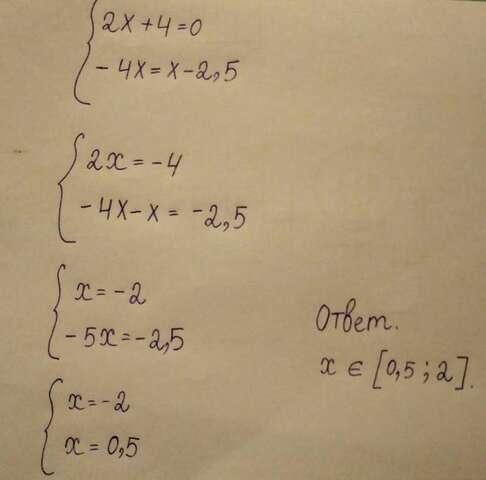 2x+4=0
-4x=x-2,5
2x=-4
-4x-x=-2,5
x=-2
-5x=-2,5
x=-2
x=0,5
Ответ.
x ∈ [0,5; 2].